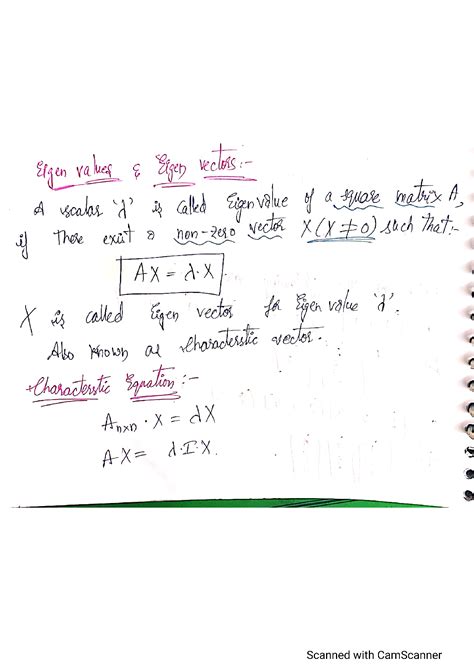 Eigen values & Eigen vectors:-
A scalar 'λ' is called Eigen value of a square matrix A,
if there exist a non-zero vector X (X ≠ 0) such that:-
AX = λ·X
X is called Eigen vector for Eigen value 'λ'.
Also known as characterstic vector.
Characterstic Equation:-
Aₙₓₙ · X = λX
AX = λ·I·X.
Scanned with CamScanner